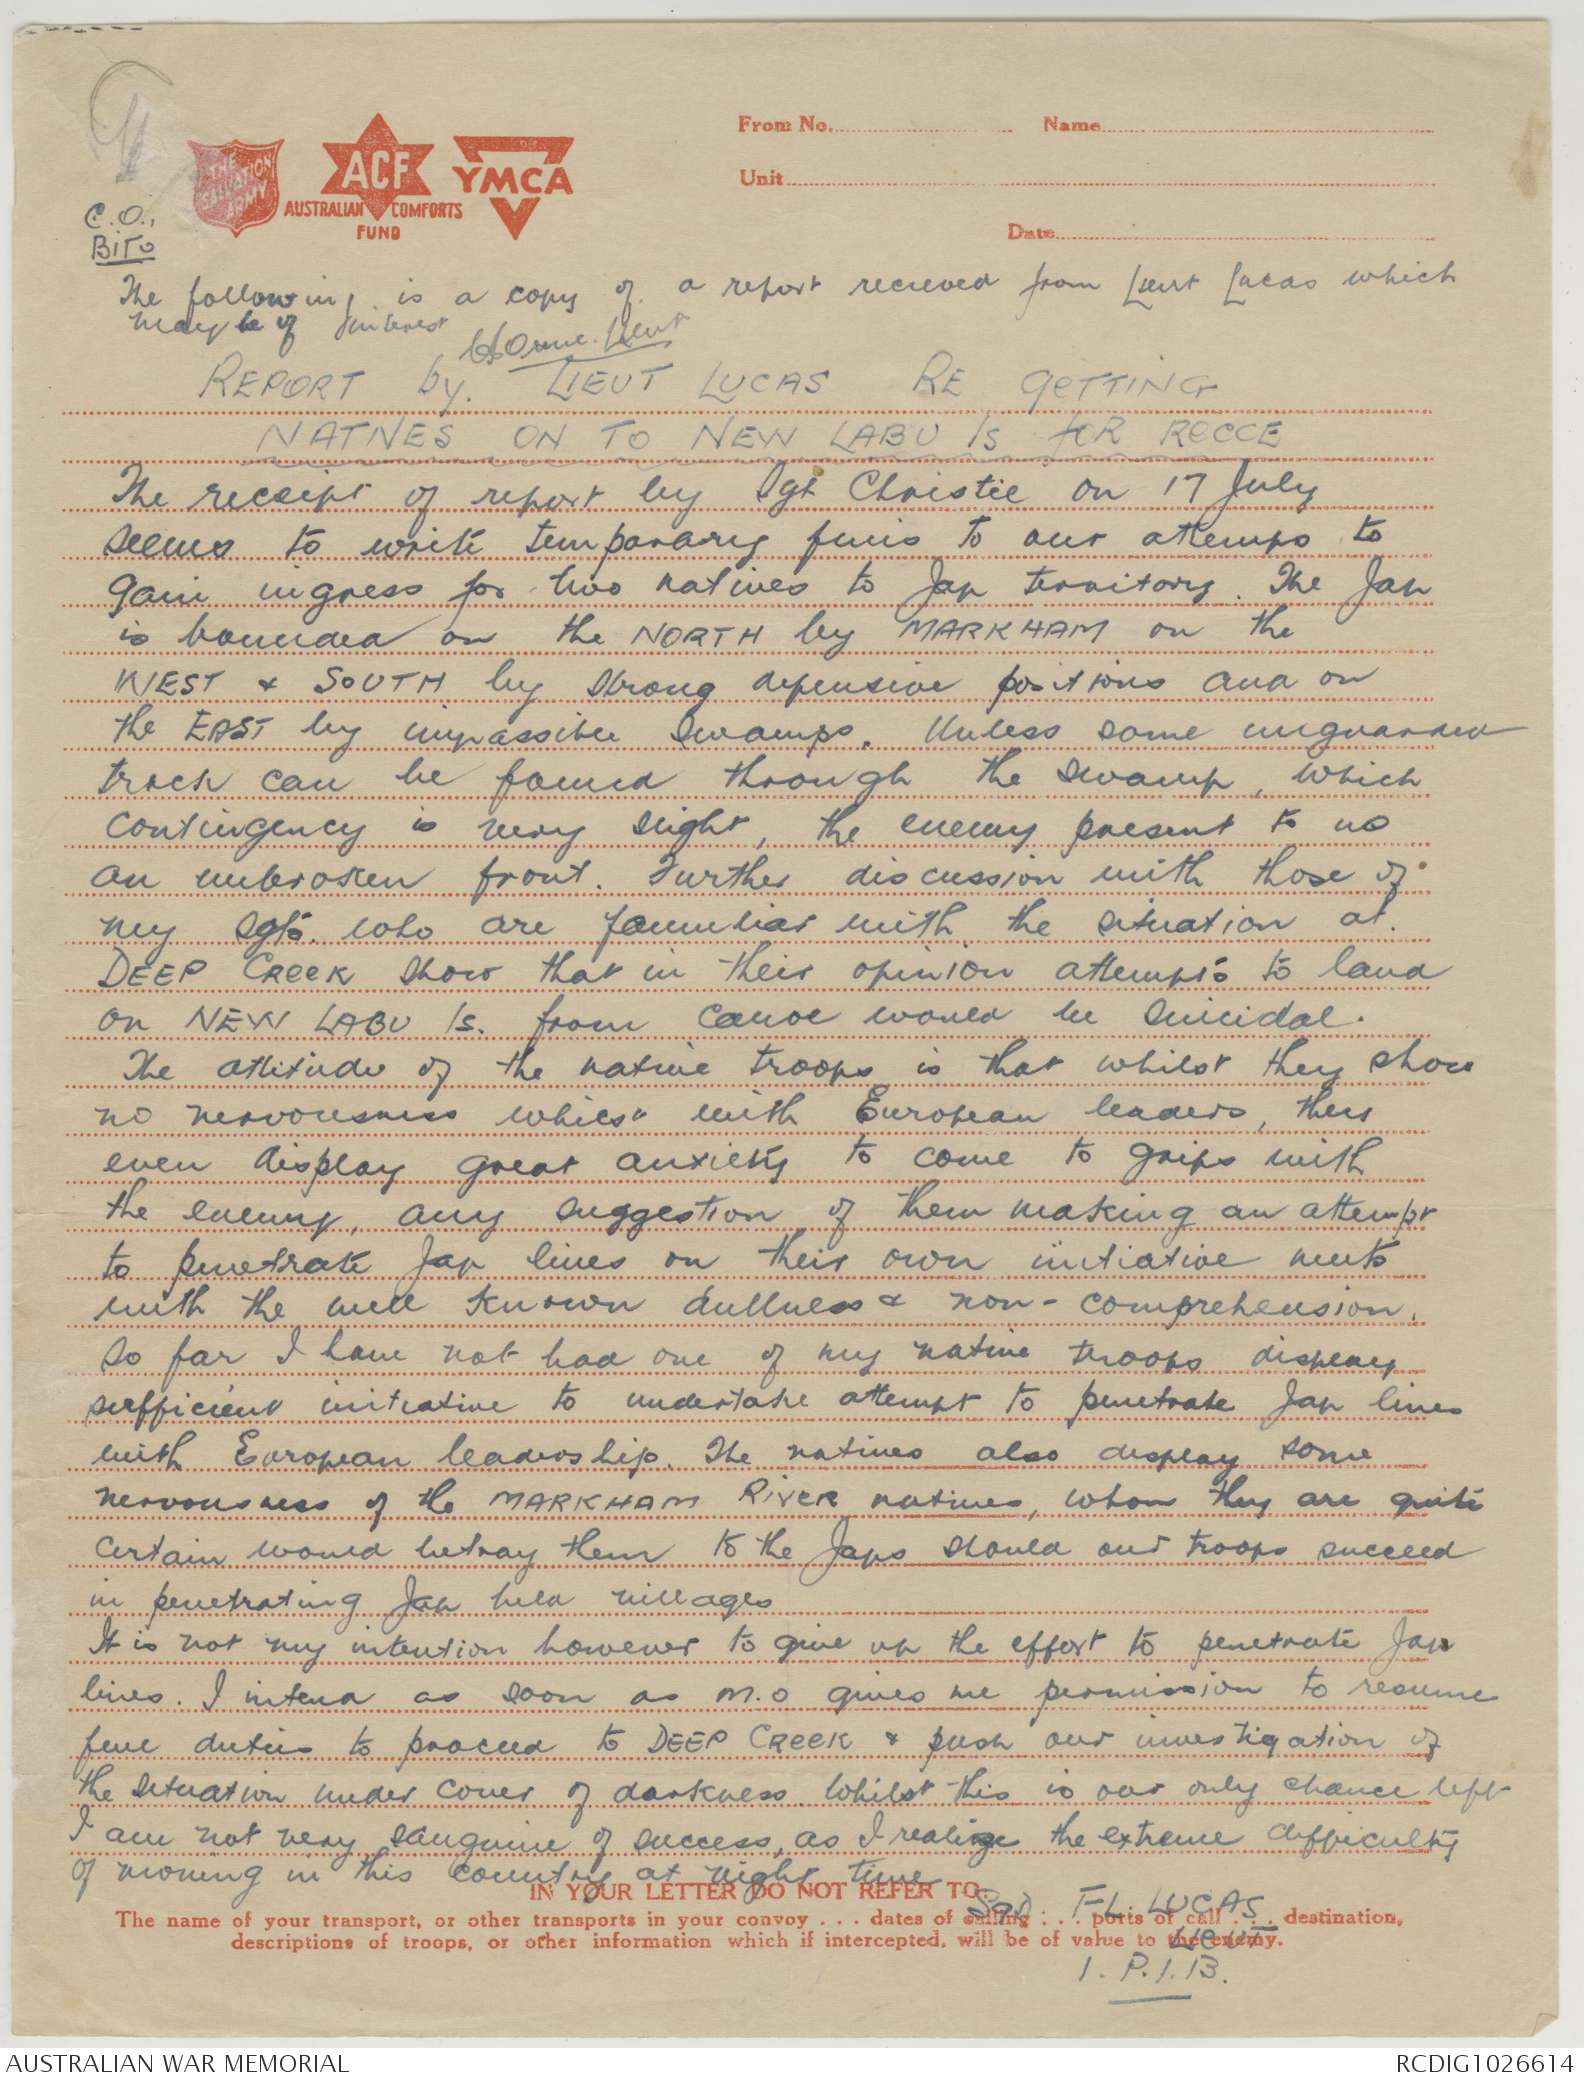 From No. Name
THE SALVATION ARMY
ACF
AUSTRALIAN COMFORTS FUND
YMCA
Unit
Date
C.O.,
BITO
The following is a copy of a report recieved from Lieut Lucas which
may be of interest
Lieut
REPORT by. LIEUT LUCAS RE GETTING
NATIVES ON TO NEW LABU Is FOR RECCE
The receipt of report by Sgt Christie on 17 July
seems to write temporary finis to our attemps to
gain ingress for two natives to Jap territory. The Jap
is bounded on the NORTH by MARKHAM on the
WEST & SOUTH by strong defensive positions and on
the EAST by impassible swamps. Unless some unguarded
track can be found through the swamp, which
contingency is very slight, the enemy present to us
an unbroken front. Further discussion with those of
my sgts. who are familiar with the situation at
DEEP CREEK show that in their opinion attempts to land
on NEW LABU Is. from canoe would be suicidal.
The attitude of the native troops is that whilst they show
no nervousness whilst with European leaders, they
even display great anxiety to come to grips with
the enemy, any suggestion of them making an attempt
to penetrate Jap lines on their own initiative meets
with the well known dullness & non-comprehension.
So far I have not had one of my native troops display
sufficient initiative to undertake attempt to penetrate Jap lines
with European leadership. The natives also display some
nervousness of the MARKHAM RIVER natives, whom they are quite
certain would betray them to the Japs should our troops succeed
in penetrating Jap held villages
It is not my intention however to give up the effort to penetrate Jap
lines. I intend as soon as M.O gives me permission to resume
full duties to proceed to DEEP CREEK & push our investigation of
the situation under cover of darkness. Whilst this is our only chance left
I am not very sanguine of success, as I realize the extreme difficulty
of moving in this country at night time
IN YOUR LETTER DO NOT REFER TO:
Sgd. F L. LUCAS
The name of your transport, or other transports in your convoy . . . dates of sailing . . . ports of call . . . destination,
descriptions of troops, or other information which if intercepted, will be of value to the enemy.
Lieut
1. P.I.B.
AUSTRALIAN WAR MEMORIAL RCDIG1026614